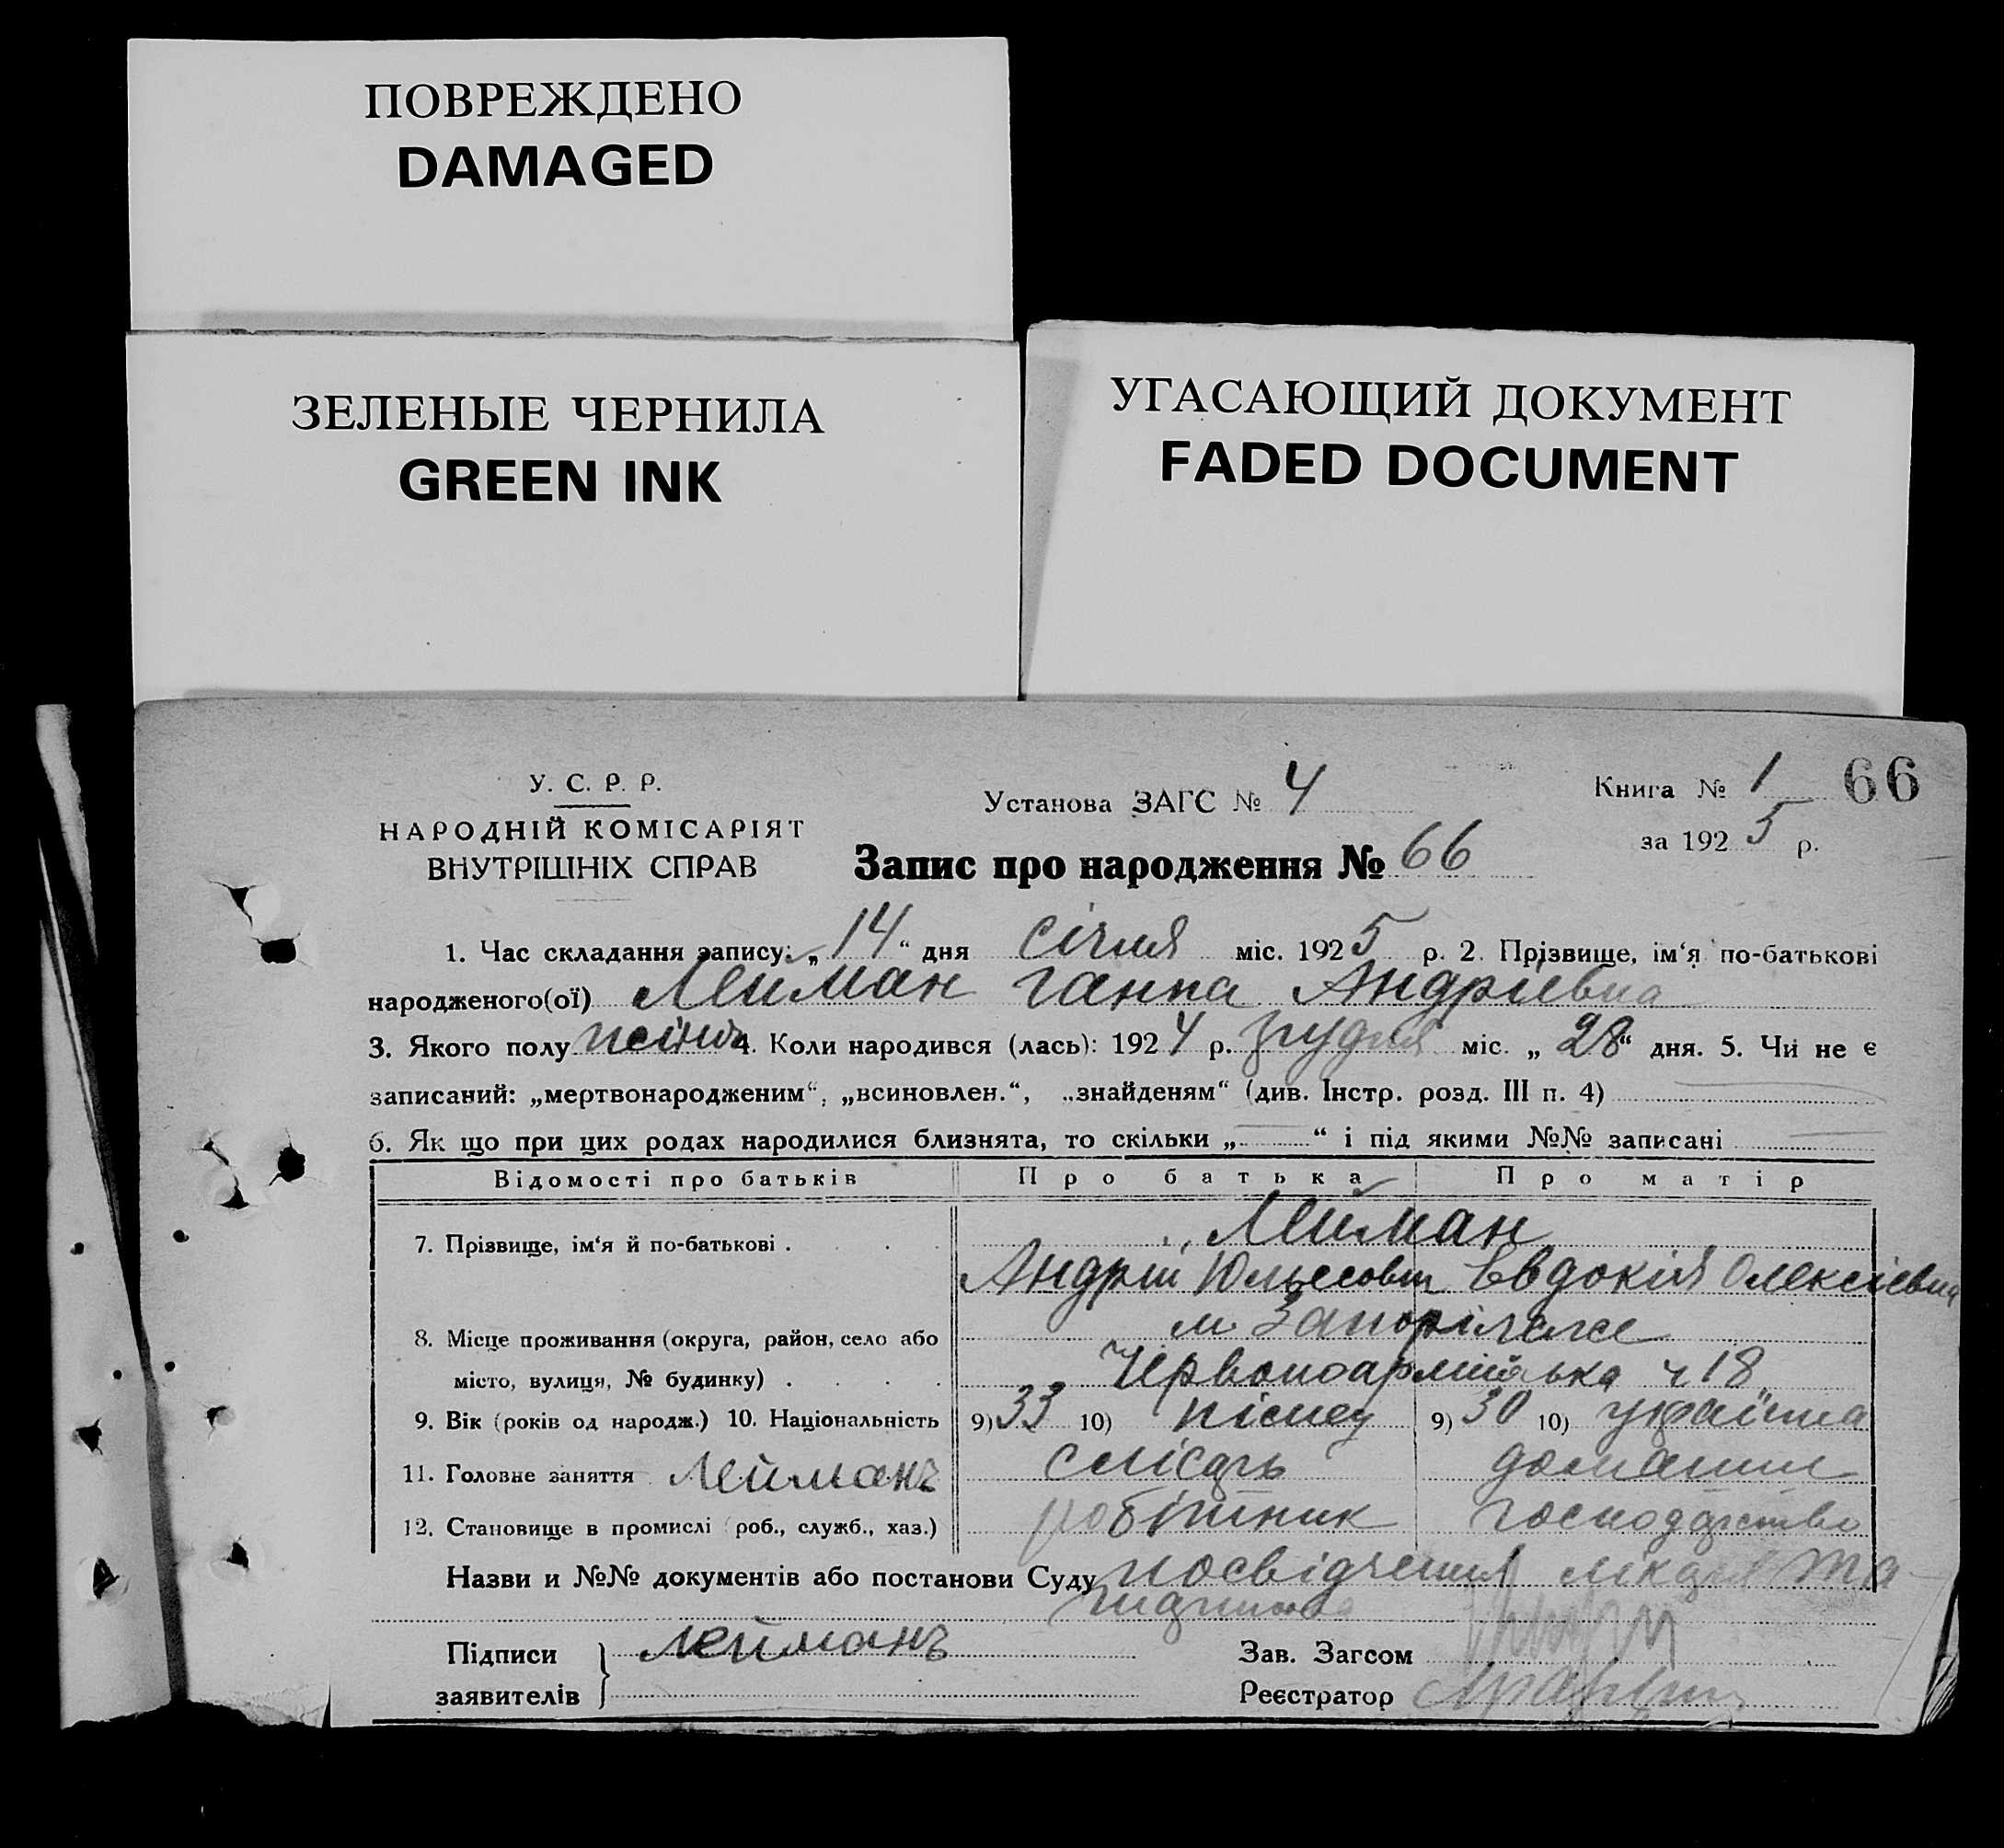 ПОВРЕЖДЕНО
DAMAGED
ЗЕЛЕНЫЕ ЧЕРНИЛА
GREEN INK
УГАСАЮЩИЙ ДОКУМЕНТ
FADED DOCUMENT
У. С. Р. Р.
НАРОДНІЙ КОМІСАРІЯТ
ВНУТРІШНІХ СПРАВ
Установа ЗАГС № 4
Запис про народження № 66
Книга № 1 66
за 1925 р.
1. Час складання запису: „14“ дня січня міс. 1925 р. 2. Прізвище, ім‘я по-батькові
народженого(ої) Лейман Ганна Андріївна
3. Якого полу жіноч 4. Коли народився (лась): 1924 р. грудня міс. „28“ дня. 5. Чи не є
записаний: „мертвонародженим“, „всиновлен.“, „знайденям“ (див. Інстр. розд. III п. 4)
6. Як що при цих родах народилися близнята, то скільки „ “ і під якими №№ записані
Відомості про батьків Про батька Про матір
7. Прізвище, ім‘я й по-батькові . Лейман
Андрій Евдокія Олексієвна
8. Місце проживання (округа, район, село або м Запоріжже
місто, вулиця, № будинку) . Червоноармійська ч 18
9. Вік (років од народж.) 10. Національність 9) 33 10) німец 9) 30 10) українка
11. Головне заняття Лейманъ слюсарь домашнє
12. Становище в промислі (роб., служб., хаз.) робітник господарство
Назви и №№ документів або постанови Суду посвідчення лікаря та
Підписи Лейманъ Зав. Загсом
заявителів Реєстратор